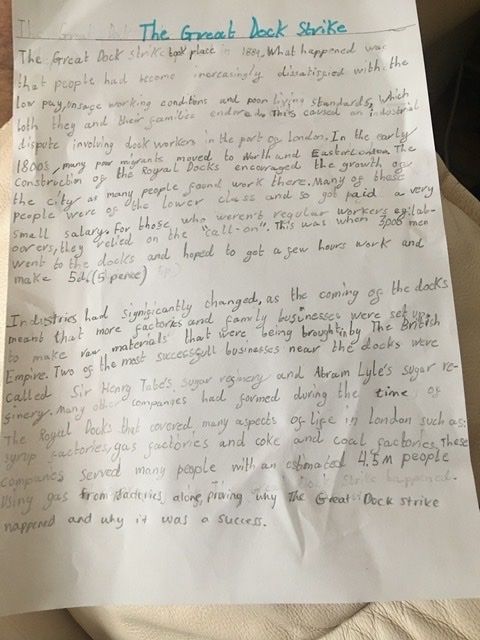 The Great Dock Strike
The Great Dock Strike took place in 1889. What happened was
that people had become increasingly dissatisfied with the
low pay, unsafe working conditions and poor living standards, which
both they and their families endured. This caused an industrial
dispute involving dock workers in the port of London. In the early
1800s, many poor migrants moved to North and East London. The
construction of the Royal Docks encouraged the growth of
the city as many people found work there. Many of these
people were of the lower class and so got paid a very
small salary. For those who weren't regular workers eg. lab-
oorers, they relied on the "call-on". This was when 3000 men
went to the docks and hoped to get a few hours work and
make 5d. (5 pence)
Industries had significantly changed, as the coming of the docks
meant that more factories and family businesses were set up
to make raw materials that were being brought in by The British
Empire. Two of the most successfull businesses near the docks were
called Sir Henry Tate's sugar refinery and Abram Lyle's sugar re-
finery. Many other companies had formed during the time of
The Royal Docks that covered many aspects of life in London such as:
syrup factories, gas factories and coke and coal factories. These
companies served many people with an estimated 4.5M people
using gas from factories along, proving why The Great Dock strike
happened and why it was a success.